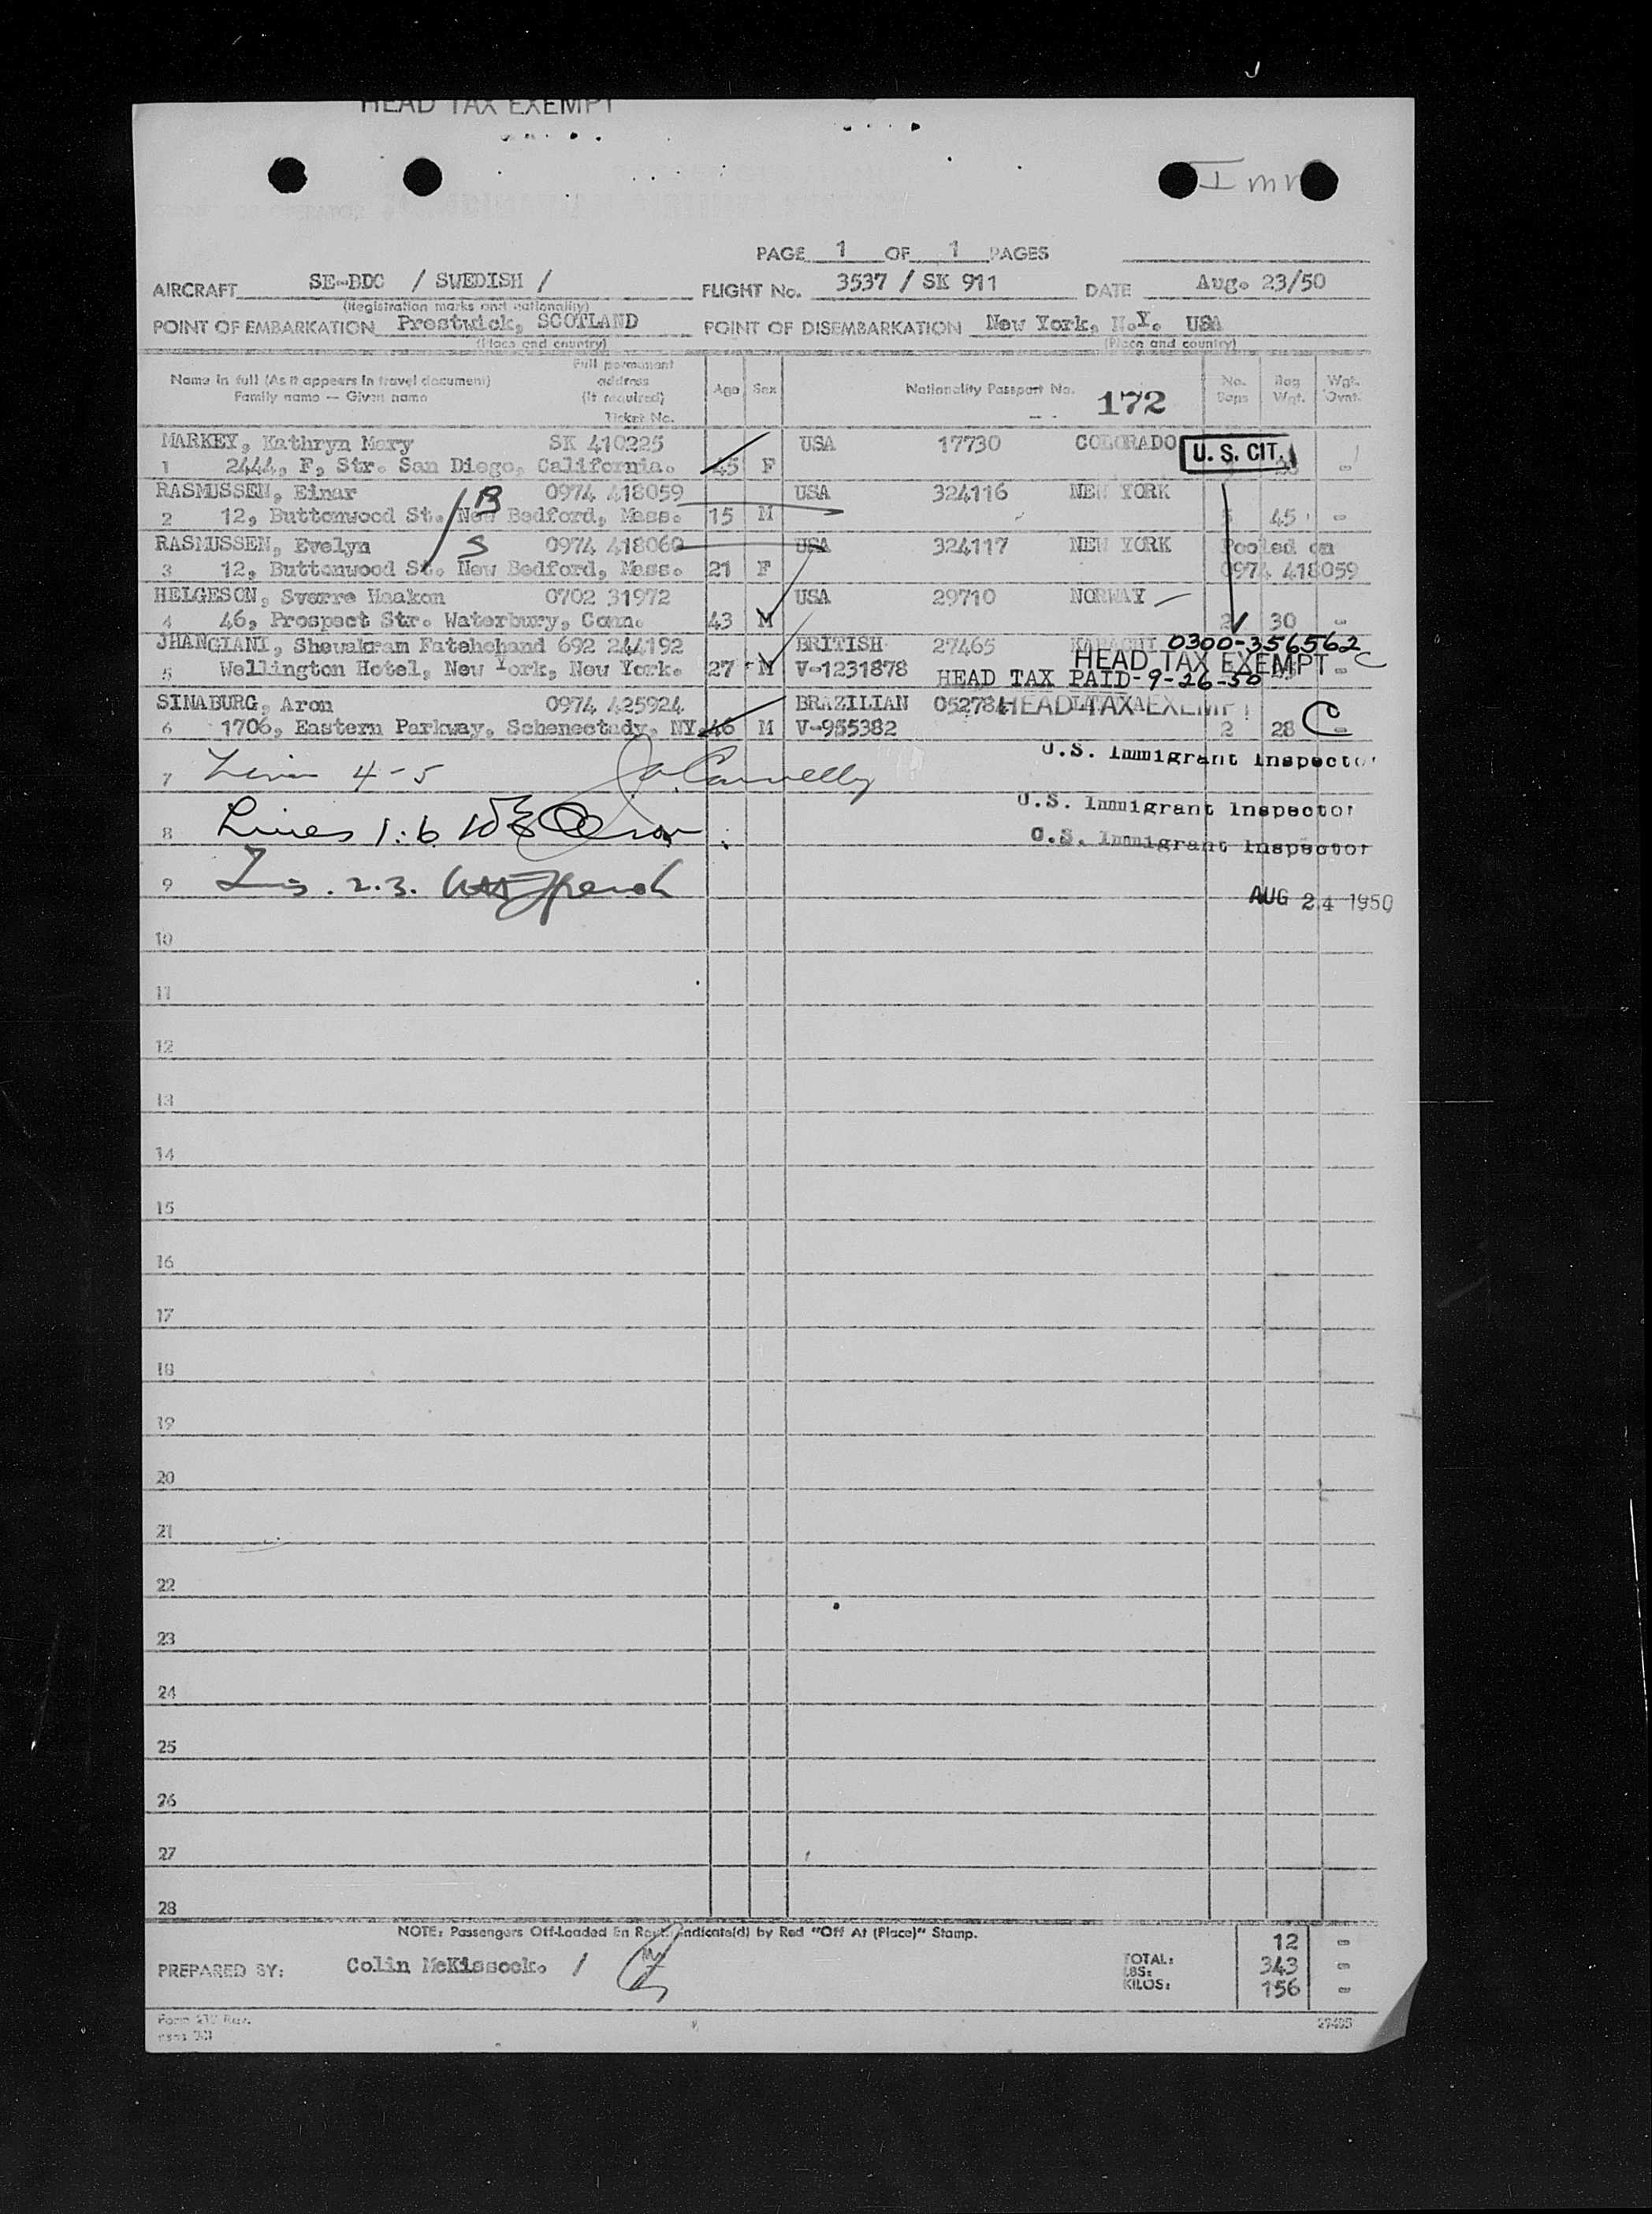 HEAD TAX EXEMPT
Imm
PAGE 1 OF 1 PAGES
AIRCRAFT SE-BDC / SWEDISH / FLIGHT No. 3537 / SK 911 DATE Aug. 23/50
(Registration marks and nationality)
POINT OF EMBARKATION Prestwick, SCOTLAND POINT OF DISEMBARKATION New York, N.Y. USA
(Place and country) (Place and country)
Name in full (As it appears in travel document) Family name — Given name Full permanent address (if required) Ticket No. Age Sex Nationality Passport No. 172 No. Bags Bag Wgt. Wgt. Ovnt.
MARKEY, Kathryn Mary SK 410225 USA 17730 COLORADO U.S. CIT.
1 2444, F, Str. San Diego, California. 45 F -
RASMUSSEN, Einar B 0974 418059 USA 324116 NEW YORK
2 12, Buttonwood St. New Bedford, Mass. 15 M 45 -
RASMUSSEN, Evelyn S 0974 418060 USA 324117 NEW YORK Pooled on
3 12, Buttonwood St. New Bedford, Mass. 21 F 0974 418059
HELGESON, Sverre Haakon 0702 31972 USA 29710 NORWAY
4 46, Prospect Str. Waterbury, Conn. 43 M 2 30 -
JHANGIANI, Shewakram Fatehchand 692 244192 BRITISH 27465 KARACHI 0300-356562
HEAD TAX EXEMPT C
5 Wellington Hotel, New York, New York. 27 M V-1231878 -
HEAD TAX PAID-9-26-50
SINABURG, Aron 0974 425924 BRAZILIAN 052784 HEAD TAX EXEMPT
6 1706, Eastern Parkway, Schenectady, NY. 46 M V-955382 2 28 C -
U.S. Immigrant Inspector
7 Lines 4-5 J. Connelly
U.S. Immigrant Inspector
8 Lines 1:6
U.S. Immigrant Inspector
9 Lns. 2.3.
AUG 24 1950
10
11
12
13
14
15
16
17
18
19
20
21
22
23
24
25
26
27
28
NOTE: Passengers Off-Loaded En Route Indicate(d) by Red "Off At (Place)" Stamp.
12 -
PREPARED BY: Colin McKissock. / TOTAL: LBS: 343 -
KILOS: 156 -
Form
29405